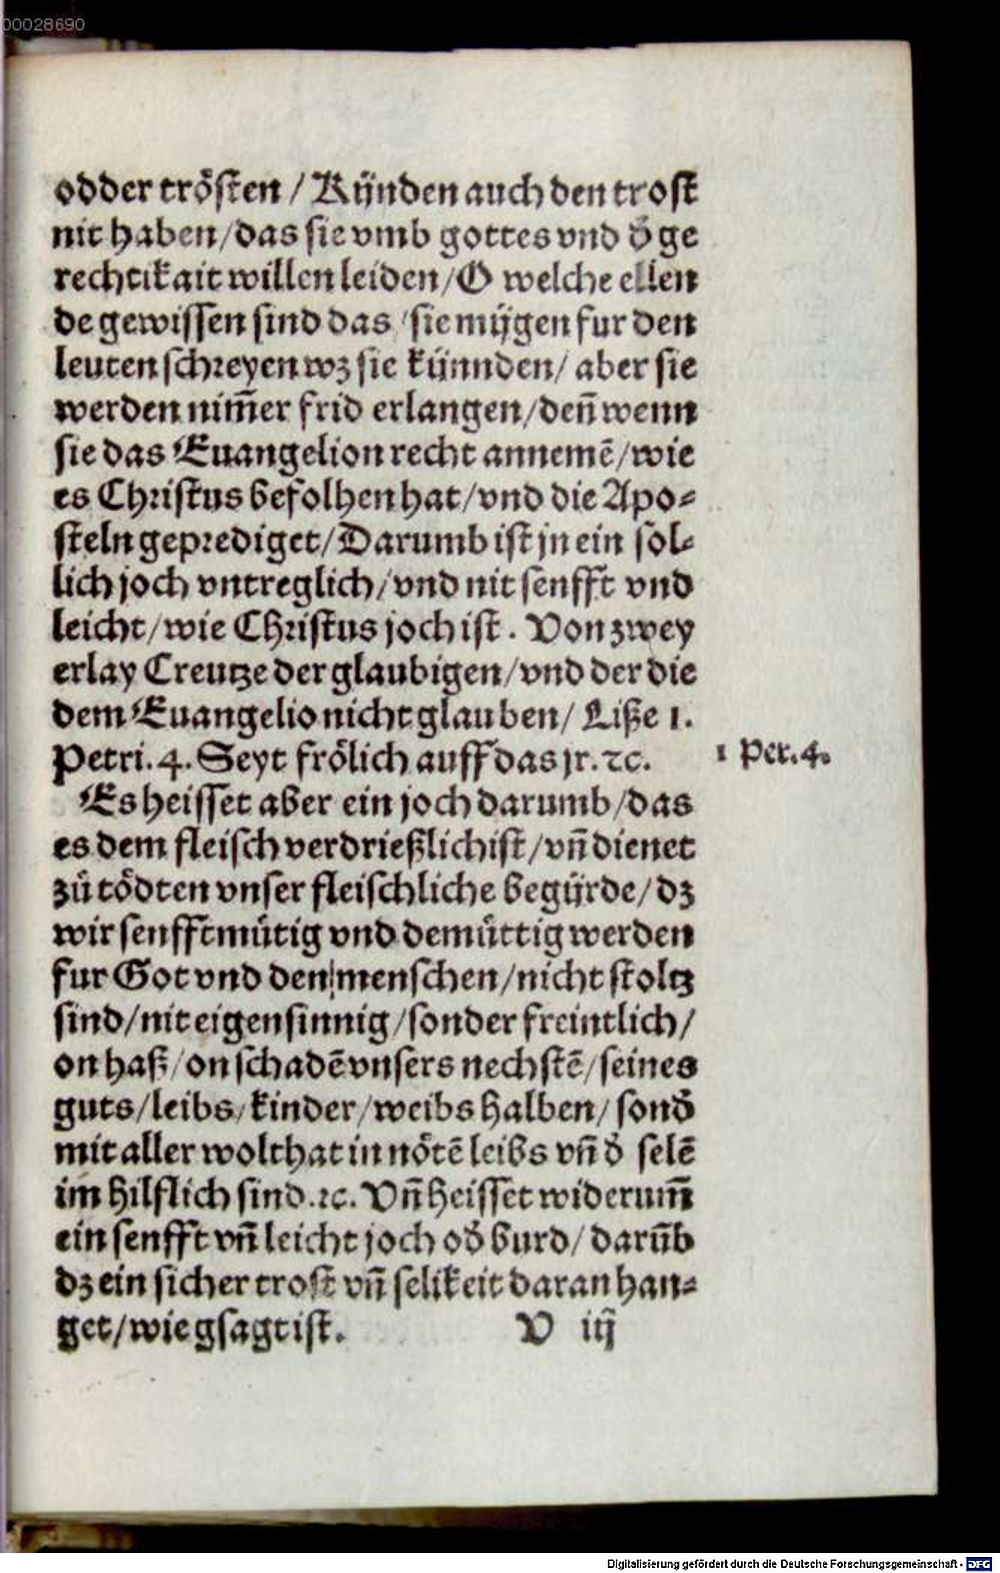 00028690
odder trösten / Kÿnden auch den trost
nit haben/das sie vmb gottes vnd d̕ ge
rechtikait willen leiden/O welche ellen
de gewissen sind das /sie mÿgen fur den
leuten schreyen wz sie kÿnnden/ aber sie
werden nim̄er frid erlangen/den̄ wenn
sie das Euangelion recht annemē/wie
es Christus befolhen hat/vnd die Apo⸗
steln geprediget/Darumb ist jn ein söl⸗
lich joch vntreglich/vnd nit senfft vnd
leicht/wie Christus joch ist . Von zwey
erlay Creutze der glaubigen/vnd der die
dem Euangelio nicht glauben/ Liße 1.
Petri. 4. Seyt frölich auff das jr. ꝛc.
1 Pet. 4.
Es heisset aber ein joch darumb/das
es dem fleisch verdrießlich ist/vn̄ dienet
zů tödten vnser fleischliche begÿrde/dz
wir senfftmütig vnd demüttig werden
fur Got vnd den menschen/nicht stoltz
sind/nit eigensinnig/sonder freintlich/
on haß/on schadē vnsers nechstē/seines
guts/leibs/kinder/weibs halben/sond̕
mit aller wolthat in nötē leibs vn̄ d̕ selē
im hilflich sind.ꝛc. Vn̄ heisset widerum̄
ein senfft vn̄ leicht joch od̕ burd/darūb
dz ein sicher trost vn̄ selikeit daran han⸗
get/wie gsagt ist.
V iij
Digitalisierung gefördert durch die Deutsche Forschungsgemeinschaft - DFG